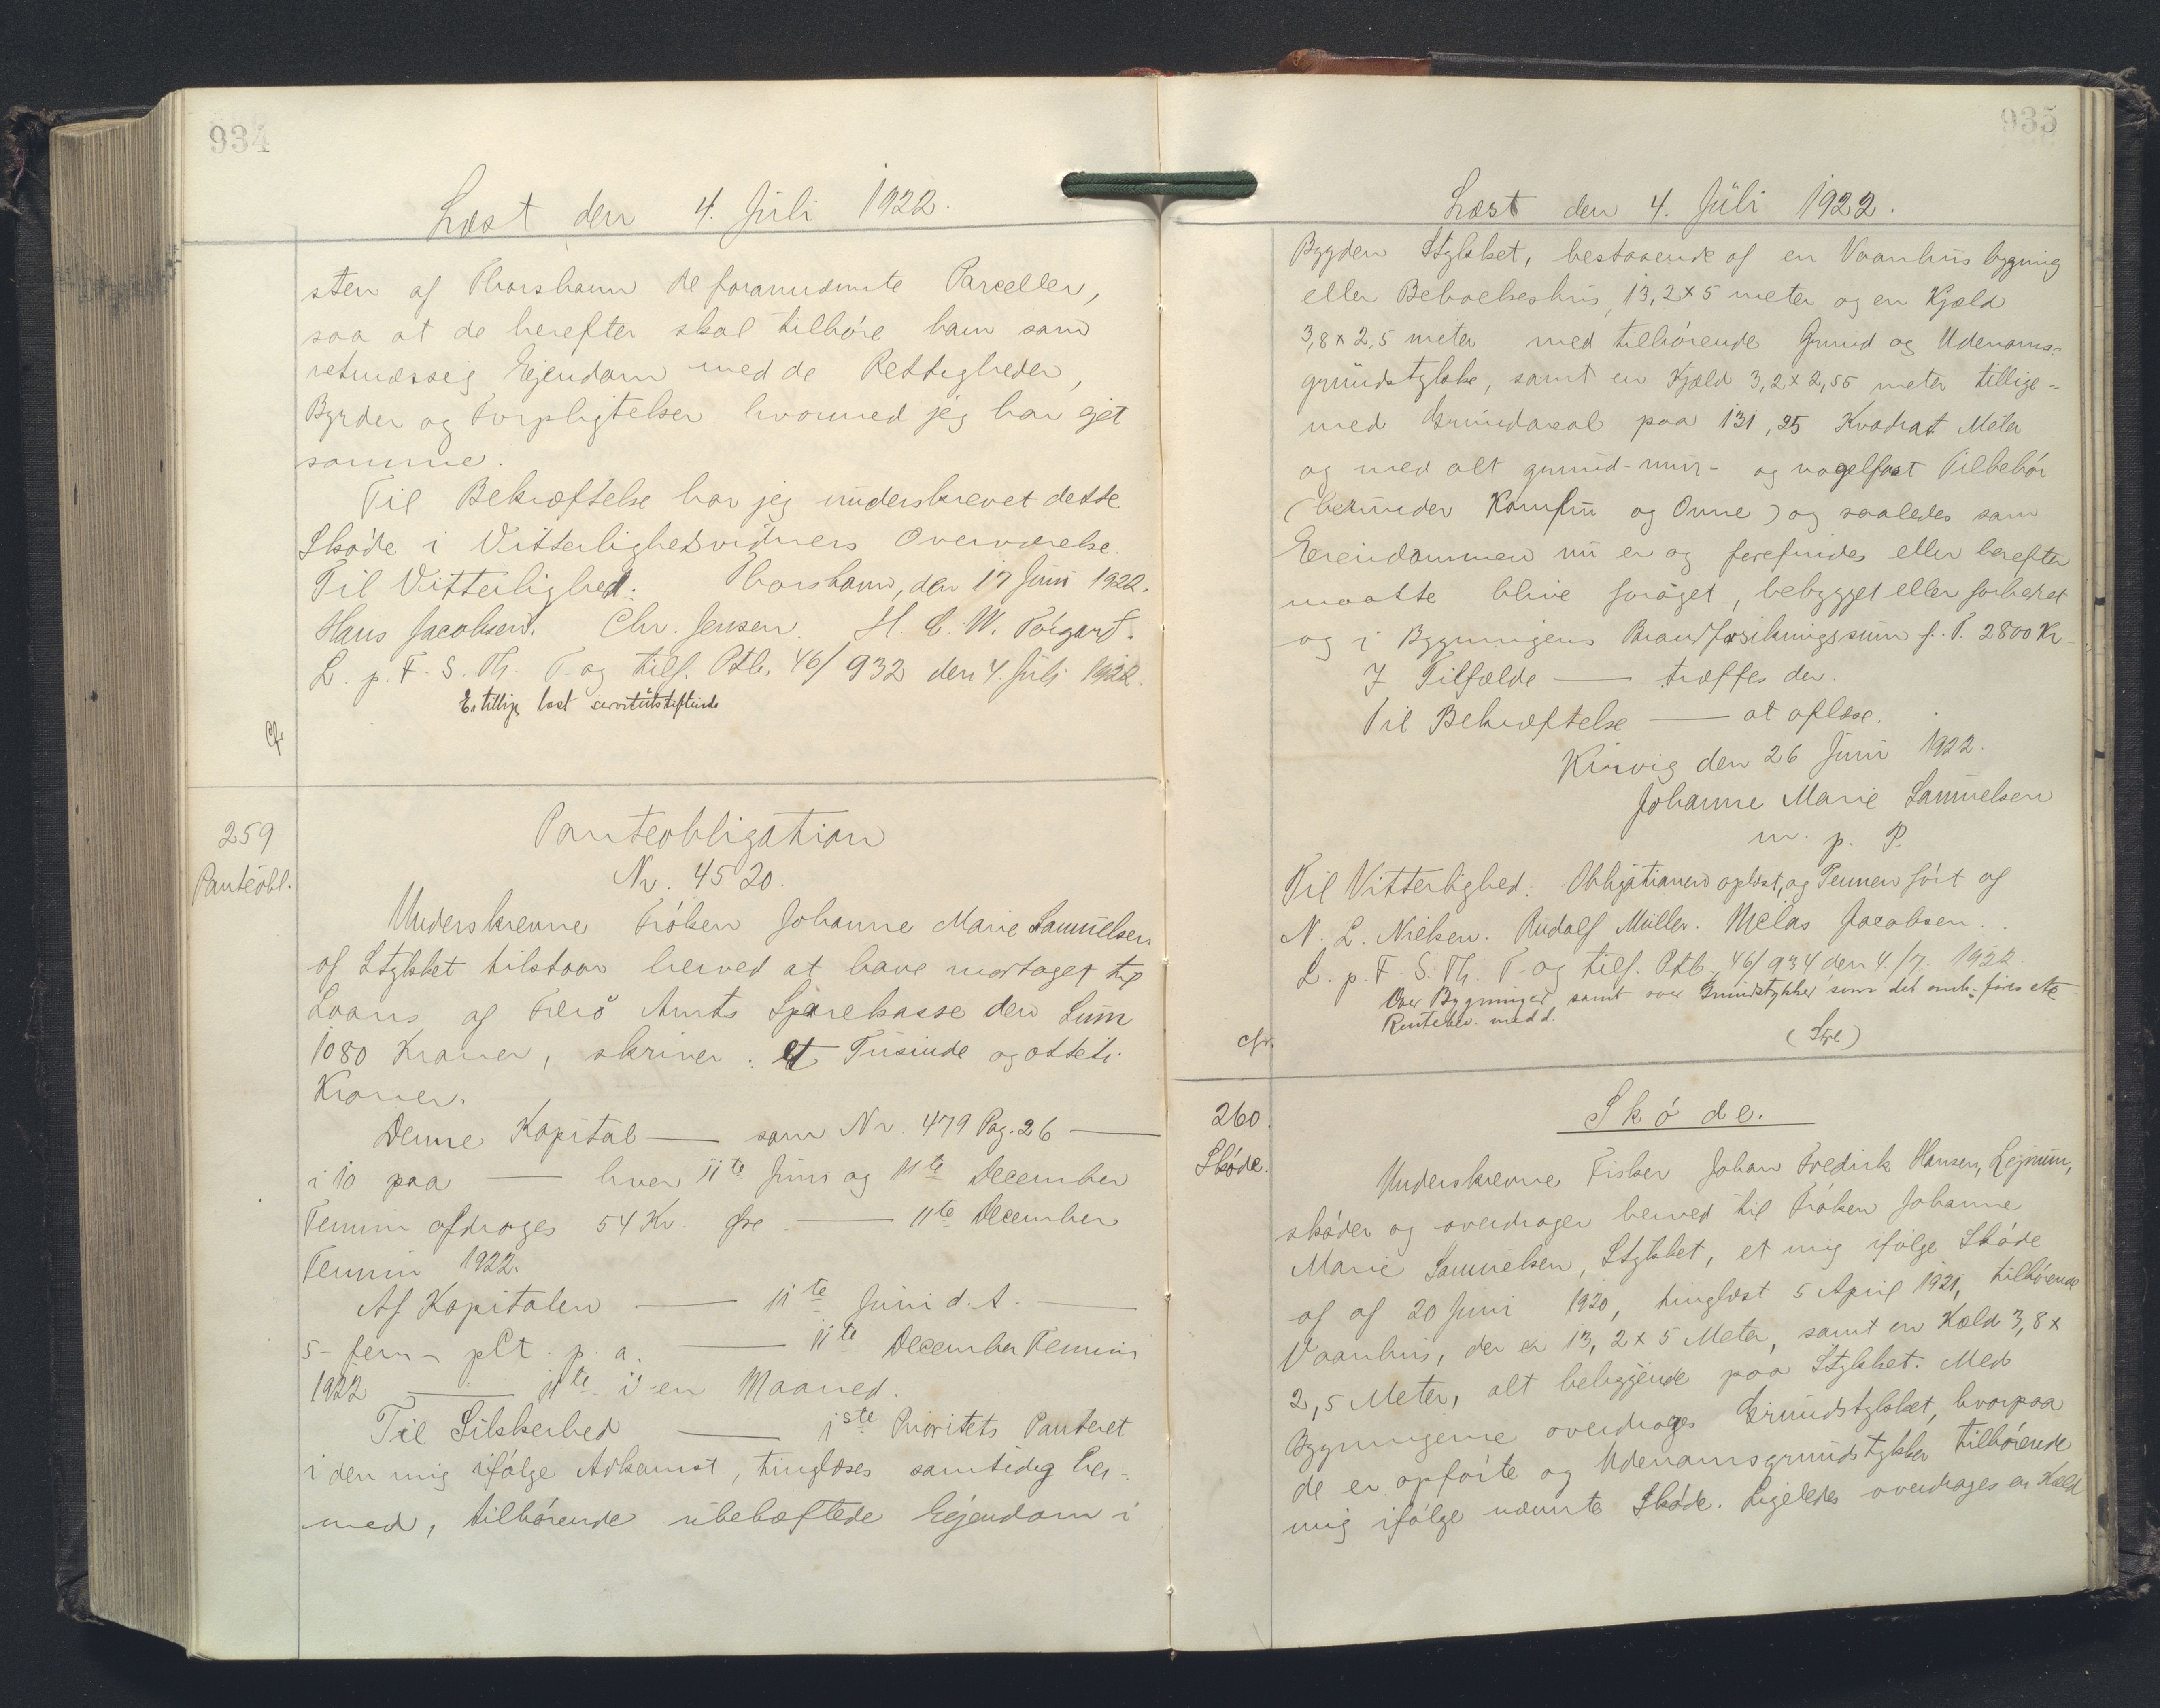 934
Læst den 4. Juli 1922.
sten af Thorshavn de forannævnte Parceller,
saa at de herefter skal tilhøre ham som
retmæssig Ejendom med de Rettigheder,
Byrder og Forpligtelser hvormed jeg har ejet
samme.
Til Bekræftelse har jeg underskrevet dette
Skøde i Vitterlighedsvidners Overværelse.
Til Vitterlighed: Thorshavn, den 17 Juni 1922.
Hans Jacobsen. Chr. Jensen. H. C. W. Tórgarð.
L. p. F. S. Th. T. og tilf. Ptb. 46/932 den 4. Juli 1922.
Er tillige læst servitutstiftende
Cfr
259
Panteobl.
Panteobligation
Nr. 4520.
Underskrevne Frøken Johanne Marie Samuelsen
af Stykket tilstaar herved at have modtaget til
Laans af Færø Amts Sparekasse den Sum
1080 Kroner, skriver: et Tusinde og otteti
Kroner.
Denne Kapital — som Nr. 479 Pag. 26 —
i 10 paa — hver 11te Juni og 11te December
Termin afdrages 54 Kr. Øre — 11te December
Termin 1922.
Af Kapitalen — 11te Juni d. A. —
5 - fem - pCt. p. a. — 11te December Termin
1922 — 11te i en Maaned.
Til Sikkerhed — 1ste Prioritets Panteret
i den mig ifølge Adkomst, tinglæses samtidig her-
med, tilhørende ubehæftede Ejendom i
935
Læst den 4. Juli 1922.
Bygden Stykket, bestaaende af en Vaanhusbygning
eller Beboelseshus, 13,2 x 5 meter og en Kjæld
3,8 x 2,5 meter med tilhørende Grund og Udenoms-
grundstykke, samt en Kjæld 3,2 x 2,55 meter tillige-
med Grundareal paa 131,25 Kvadrat Meter
og med alt grund- mur- og nagelfast Tilbehør
(herunder Komfur og Ovne) og saaledes som
Eiendommen nu er og forefindes eller herefter
maatte blive forøget, bebygget eller forbedret
og i Bygningens Brandforsikringssum f. T. 2800 Kr
I Tilfælde — træffes der.
Til Bekræftelse — at aflæse.
Kvivig den 26 Juni 1922.
Johanne Marie Samuelsen
m. p. P.
Til Vitterlighed: Obligationen oplæst, og Pennen ført af
N. L. Nielsen. Rudolf Müller. Niclas Jacobsen.
L. p. F. S. Th. T. og tilf. Ptb. 46/934 den 4./7. 1922.
Over Bygninger samt over Grundstykker som det omh. fires etc
Rentebev. medd.
(Styk)
cfr.
260.
Skøde.
Skøde.
Underskrevne Fisker Johan Fredrik Hansen, Lejnum,
skøder og overdrager herved til Frøken Johanne
Marie Samuelsen, Stykket, et mig ifølge Skøde
af af 20 Juni 1920, tinglæst 5 April 1921, tilhørende
Vaanhus, der er 13,2 x 5 Meter, samt en Kæld 3,8 x
2,5 Meter, alt beliggende paa Stykket. Med
Bygningerne overdrages Grundstykket, hvorpaa
de er opførte og Udenomsgrundstykker tilhørende
mig ifølge nævnte Skøde. Ligeledes overdrages en Kæld